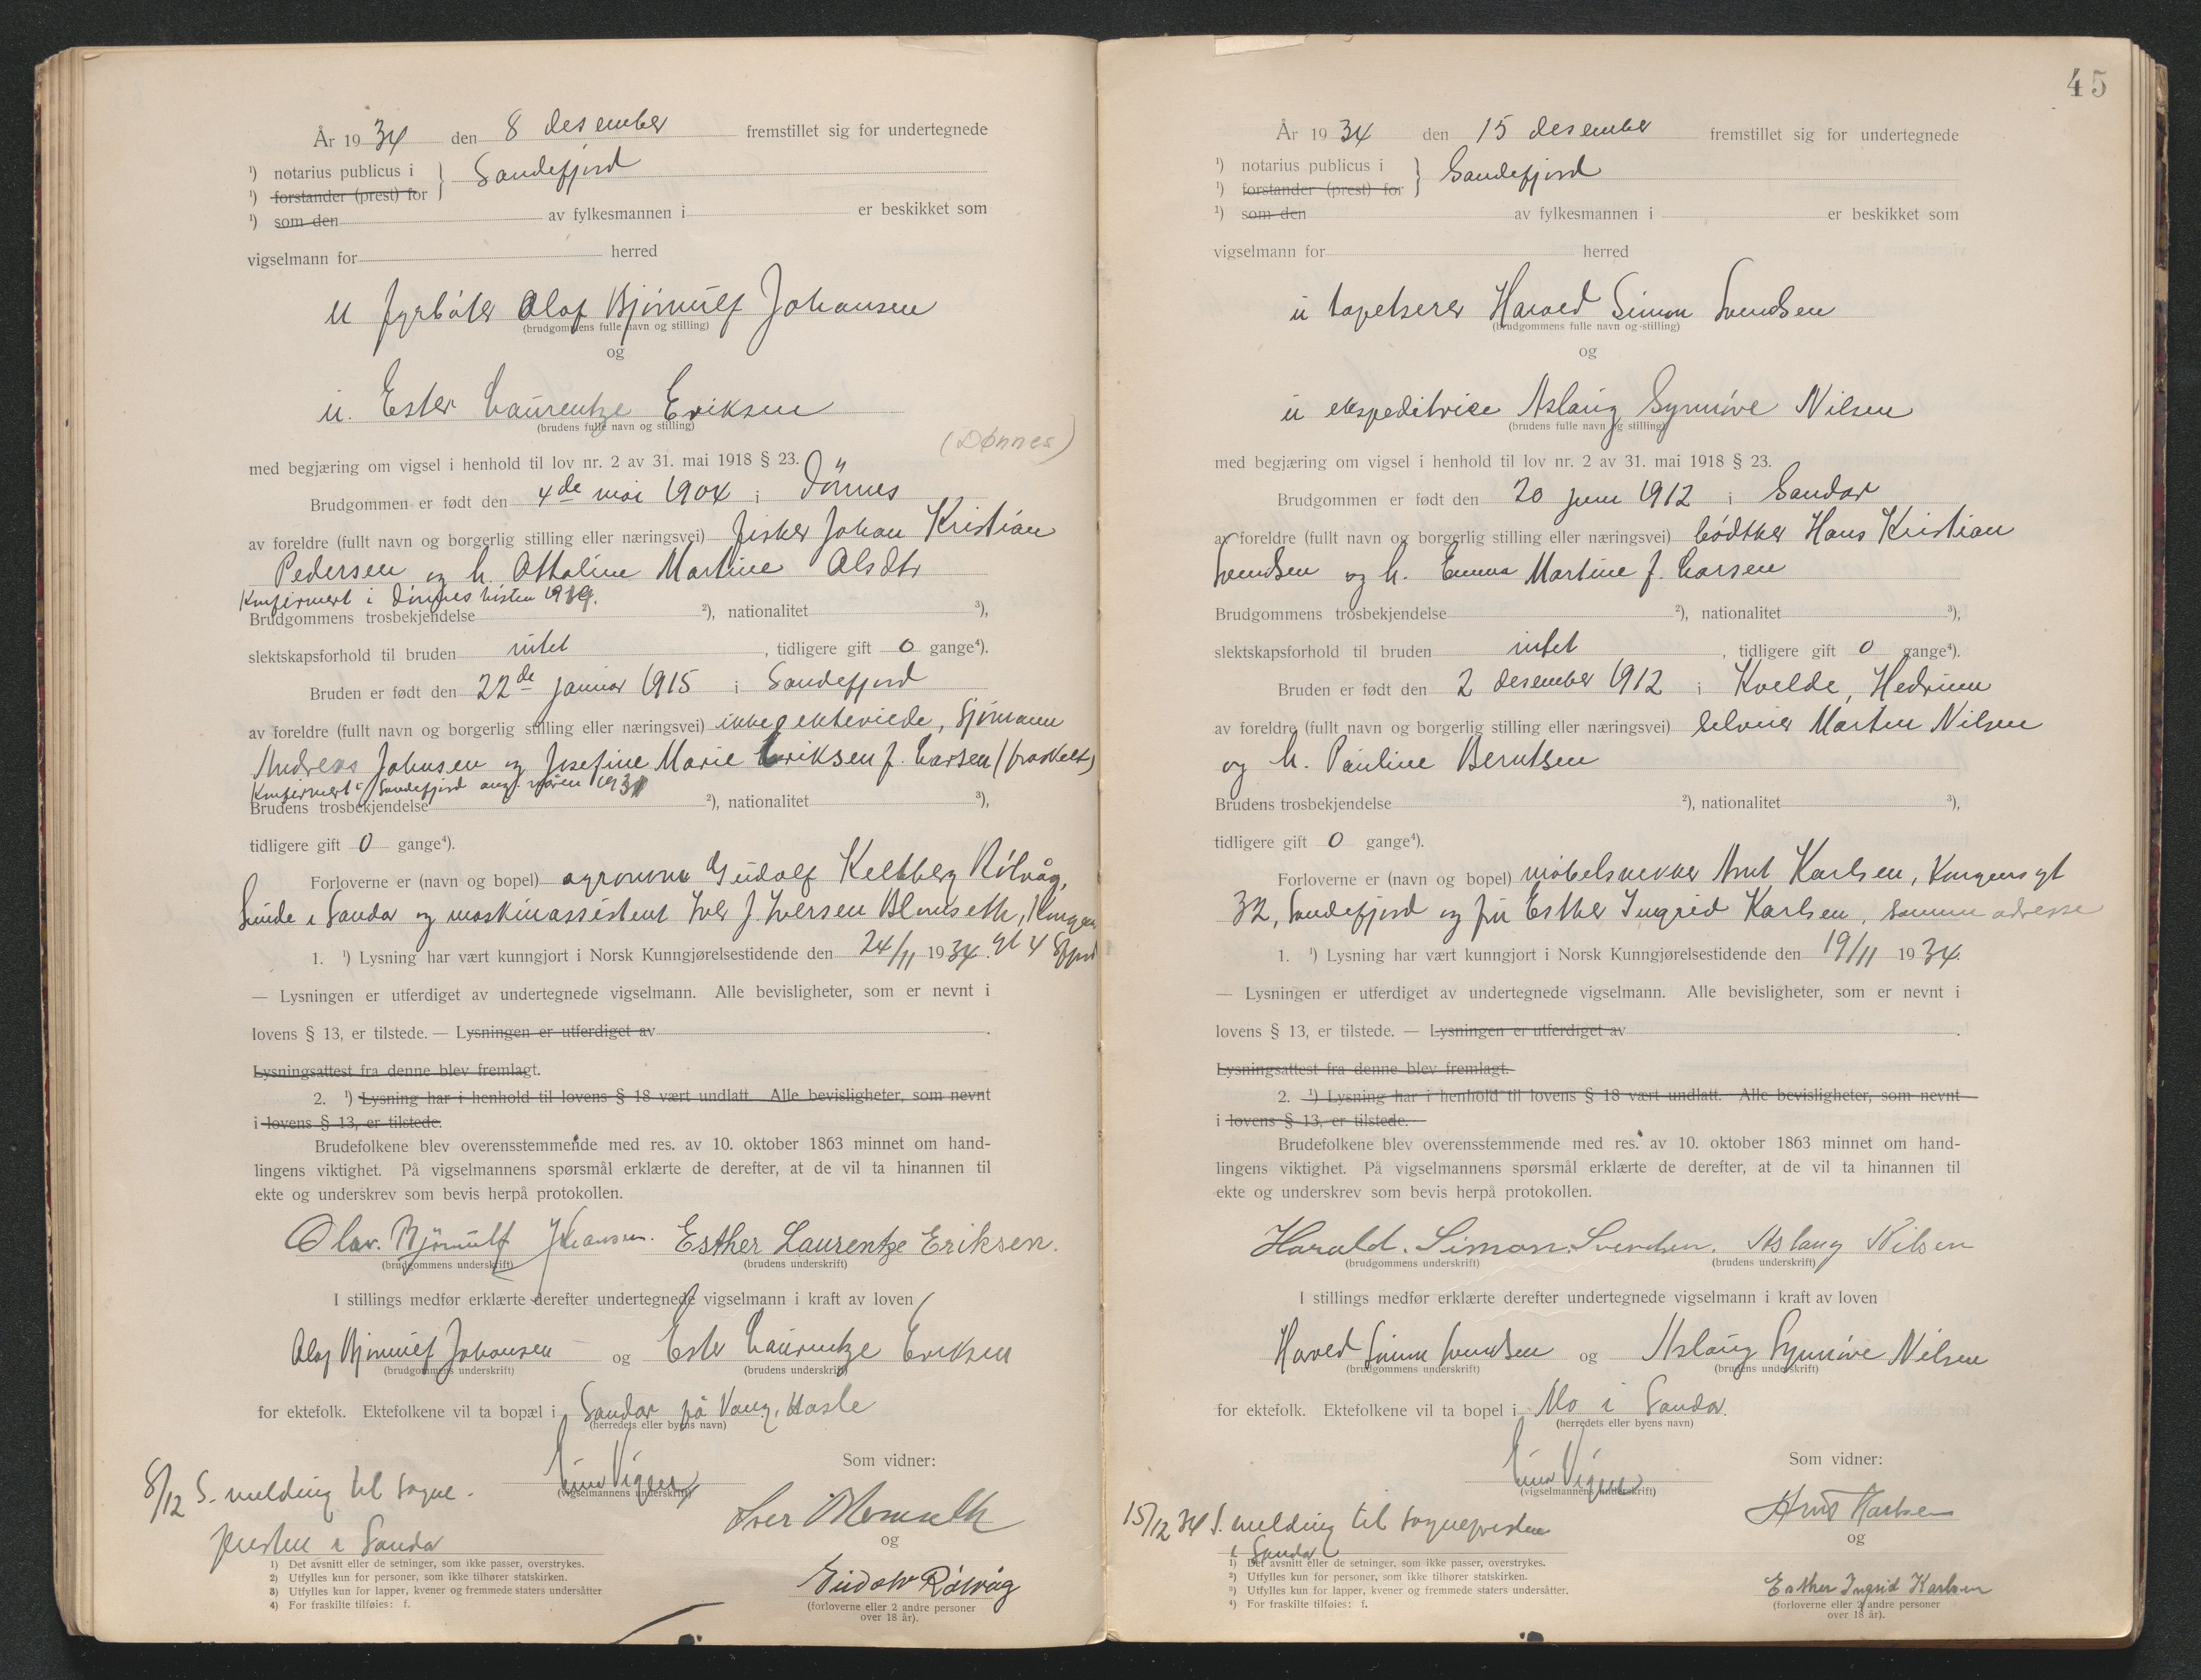 År 1934 den 8 desember fremstillet sig for undertegnede
¹) notarius publicus i } Sandefjord
¹) forstander (prest) for
¹) som den av fylkesmannen i er beskikket som
vigselmann for herred
u fyrbøter Olaf Bjørnulf Johansen
(brudgommens fulle navn og stilling)
og
u. Ester Laurentze Eriksen
(brudens fulle navn og stilling)
(Dønnes)
med begjæring om vigsel i henhold til lov nr. 2 av 31. mai 1918 § 23.
Brudgommen er født den 4de mai 1904 i Dönnes
av foreldre (fullt navn og borgerlig stilling eller næringsvei) fisker Johan Kristian
Pedersen og h. Ottoline Martine Olsdtr
Konfirmert i Dønnes høsten 1919.
Brudgommens trosbekjendelse ²), nationalitet ³),
slektskapsforhold til bruden intet, tidligere gift 0 gange⁴).
Bruden er født den 22de januar 1915 i Sandefjord
av foreldre (fullt navn og borgerlig stilling eller næringsvei) ikke ekteviede, Sjömann
Andreas Johnsen og Josefine Marie Eriksen f. Larsen (fraskilt)
Konfirmert i Sandefjord våren 1931
Brudens trosbekjendelse ²), nationalitet ³),
tidligere gift 0 gange⁴).
Forloverne er (navn og bopel) agronom Gudolf Keltberg Rølvåg,
Lunde i Sandar og maskinassistent Iver J. Iversen Blomseth, Kongens
gt 4 Sfjord
1. ¹) Lysning har vært kunngjort i Norsk Kunngjørelsestidende den 24/11 1934.
— Lysningen er utferdiget av undertegnede vigselmann. Alle bevisligheter, som er nevnt i
lovens § 13, er tilstede. — Lysningen er utferdiget av .
Lysningsattest fra denne blev fremlagt.
2. ¹) Lysning har i henhold til lovens § 18 vært undlatt. Alle bevisligheter, som nevnt
i lovens § 13, er tilstede.
Brudefolkene blev overensstemmende med res. av 10. oktober 1863 minnet om hand-
lingens viktighet. På vigselmannens spørsmål erklærte de derefter, at de vil ta hinannen til
ekte og underskrev som bevis herpå protokollen.
Olav. Bjørnulf Johansen. Esther Laurentze Eriksen.
(brudgommens underskrift) (brudens underskrift)
I stillings medfør erklærte derefter undertegnede vigselmann i kraft av loven
Olaf Bjørnulf Johansen og Ester Laurentze Eriksen
(brudgommens underskrift) (brudens underskrift)
for ektefolk. Ektefolkene vil ta bopæl i Sandar på Vang, Hasle
(herredets eller byens navn)
Som vidner:
8/12 S. melding til sogne-
presten i Sandar
(vigselmannens underskrift)
Iver Blomseth
og
Gudolv Rølvåg
(forloverne eller 2 andre personer
over 18 år).
1) Det avsnitt eller de setninger, som ikke passer, overstrykes.
2) Utfylles kun for personer, som ikke tilhører statskirken.
3) Utfylles kun for lapper, kvener og fremmede staters undersåtter
4) For fraskilte tilføies: f.
45
År 1934 den 15 desember fremstillet sig for undertegnede
¹) notarius publicus i } Sandefjord
¹) forstander (prest) for
¹) som den av fylkesmannen i er beskikket som
vigselmann for herred
u tapetserer Harald Simon Svendsen
(brudgommens fulle navn og stilling)
og
u ekspeditrice Aslaug Synnöve Nilsen
(brudens fulle navn og stilling)
med begjæring om vigsel i henhold til lov nr. 2 av 31. mai 1918 § 23.
Brudgommen er født den 20 juni 1912 i Sandar
av foreldre (fullt navn og borgerlig stilling eller næringsvei) bødtker Hans Kristian
Svendsen og h. Emma Martine f. Larsen
Brudgommens trosbekjendelse ²), nationalitet ³),
slektskapsforhold til bruden intet, tidligere gift 0 gange⁴).
Bruden er født den 2 desember 1912 i Kvelde, Hedrum
av foreldre (fullt navn og borgerlig stilling eller næringsvei) selveier Martin Nilsen
og h. Pauline Berntsen
Brudens trosbekjendelse ²), nationalitet ³),
tidligere gift 0 gange⁴).
Forloverne er (navn og bopel) møbelsnekker Arnt Karlsen, Kongensgt
32, Sandefjord og fru Esther Ingrid Karlsen, samme adresse
1. ¹) Lysning har vært kunngjort i Norsk Kunngjørelsestidende den 19/11 1934.
— Lysningen er utferdiget av undertegnede vigselmann. Alle bevisligheter, som er nevnt i
lovens § 13, er tilstede. — Lysningen er utferdiget av .
Lysningsattest fra denne blev fremlagt.
2. ¹) Lysning har i henhold til lovens § 18 vært undlatt. Alle bevisligheter, som nevnt
i lovens § 13, er tilstede.
Brudefolkene blev overensstemmende med res. av 10. oktober 1863 minnet om hand-
lingens viktighet. På vigselmannens spørsmål erklærte de derefter, at de vil ta hinannen til
ekte og underskrev som bevis herpå protokollen.
Harald. Simon. Svendsen. Aslaug Nilsen
(brudgommens underskrift) (brudens underskrift)
I stillings medfør erklærte derefter undertegnede vigselmann i kraft av loven
Harald Simon Svendsen og Aslaug Synnöve Nilsen
(brudgommens underskrift) (brudens underskrift)
for ektefolk. Ektefolkene vil ta bopel i Mo i Sandar.
(herredets eller byens navn)
Som vidner:
15/12 34 S. melding til sognepresten
i Sandar
(vigselmannens underskrift)
Arnt Karlsen
og
Esther Ingrid Karlsen
(forloverne eller 2 andre personer
over 18 år).
1) Det avsnitt eller de setninger, som ikke passer, overstrykes.
²) Utfylles kun for personer, som ikke tilhører statskirken.
³) Utfylles kun for lapper, kvener og fremmede staters undersåtter.
⁴) For fraskilte tilføies: f.